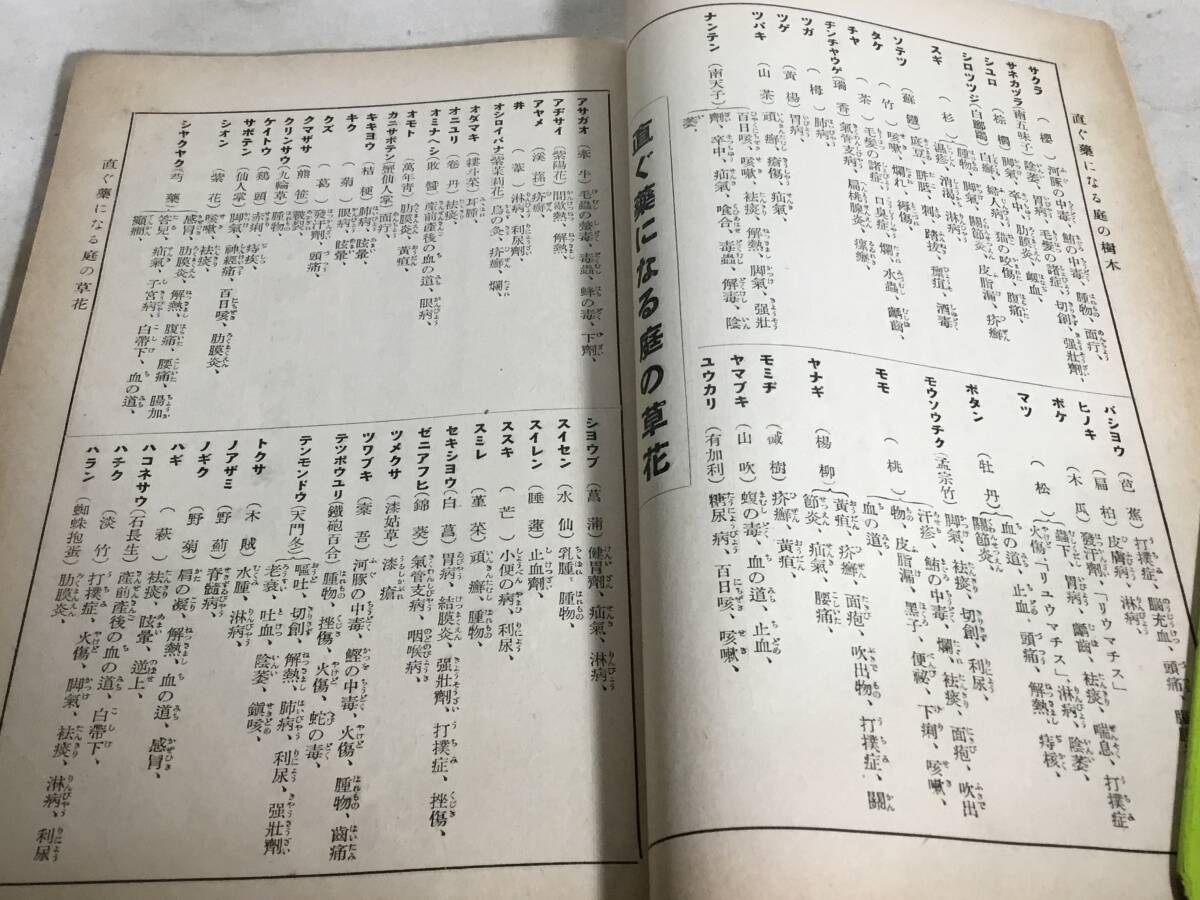 直ぐ藥になる庭の樹木
サクラ (櫻) 河豚の中毒、鮪の中毒、腫物、面疔、
サネカヅラ (南五味子) 陰萎、胃病、毛髮の諸症、切創、强壯劑、
シユロ (棕櫚) 脚氣、卒中、肋膜炎、衂血、腹痛、
シロツツジ (白躑躅) 白癬、婦人病、猫の咬傷、
スギ (杉) 腫物、脚氣、關節炎、皮脂漏、疥癬
ソテツ (蘇鐵)
タケ (竹) 咳嗽、爛れ、褥傷、
チヤ (茶) 毛髮の諸症、口臭症、爛、水蟲、齲齒、
ヂンチヤウゲ (瑞香) 氣管支病、扁桃腺炎、瘭癧、
ツガ (栂) 肺病、
ツゲ (黃楊) 胃病、
ツバキ (山茶) 頑癬、瘡傷、疝氣、
ナンテン (南天子) 百日咳、咳嗽、祛痰、解熱、脚氣、强壯劑、卒中、疝氣、喰合、毒蟲、解毒、陰萎、
バシヨウ (芭蕉) 打撲症、腦充血、頭痛、
ヒノキ (扁柏) 皮膚病、淋病、
ボケ (木瓜) 發汗劑、「リウマチス」
マツ (松) 蟲下、胃病、齲齒、祛痰、喘息、打撲症
火傷、「リユウマチス」、淋病、陰萎、
血の道、止血、頭痛、解熱、痔核、
ボタン (牡丹) 關節炎、
モウソウチク (孟宗竹) 脚氣、祛痰、切創、利尿、
モモ (桃) 汗疹、鮪の中毒、爛、祛痰、面疱、吹出物、皮脂漏、黑子、便祕、下痢、咳嗽、
血の道、
ヤナギ (楊柳) 黃疸、疥癬、面疱、吹出物、打撲症、關節炎、疝氣、腰痛、
モミヂ (槭樹) 疥癬、黃疸、
ヤマブキ (山吹) 蝮の毒、血の道、止血、
ユウカリ (有加利) 糖尿病、百日咳、咳嗽、
直ぐ藥になる庭の草花
アサガオ (牽牛) 毛蟲の螫毒、毒蟲、蜂の毒、下劑、
アヂサイ (紫陽花) 間歇熱、解熱、
アヤメ (溪蓀) 疥癬、
井 (葦) 淋病、利尿劑、
オシロイバナ (紫茉莉花) 鳥の灸、疥癬、爛、
オダマキ (縷斗菜) 耳腫、
オニユリ (卷丹) 祛痰、
オミナヘシ (敗醬) 產前產後の血の道、眼病、
オモト (萬年靑) 肋膜炎、黃疸、
カニサボテン (蟹仙人掌) 面疔、
キキヨウ (桔梗) 肺病、眩暈、
キク (菊) 眼病、眩暈、
クズ (葛) 發汗劑、頭痛、
クマザサ (熊笹) 戰袋、
クリンサウ (九輪草) 腫物、
ケイトウ (鷄頭) 赤痢、痔疾、
サボテン (仙人掌) 脚氣、神經痛、百日咳、肋膜炎、
シオン (紫花) 咳嗽、祛痰、
シヤクヤク (芍藥) 感冒、肋膜炎、解熱、腹痛、腰痛、腸加答兒、疝氣、子宮病、白帶下、血の道、癲癇、
シヨウブ (菖蒲) 健胃劑、疝氣、淋病、
スイセン (水仙) 乳腫、腫物、
スイレン (睡蓮) 止血劑、
ススキ (芒) 小便の病、利尿、
スミレ (菫菜) 頑癬、腫物、
セキシヨウ (白菖) 胃病、結膜炎、强壯劑、打撲症、挫傷、
ゼニアフヒ (錦葵) 氣管支病、咽喉病、
ツメクサ (漆姑草) 漆瘡
ツワブキ (槖吾) 河豚の中毒、鰹の中毒、火傷、腫物、齒痛
テツポウユリ (鐵砲百合) 腫物、挫傷、火傷、蛇の毒、
テンモンドウ (天門冬) 嘔吐、切創、解熱、肺病、利尿、强壯劑
老衰、吐血、陰萎、鎭咳、
トクサ (木賊) 水腫、淋病、
ノアザミ (野薊) 脊髓病、
ノギク (野菊) 肩の凝、
ハギ (萩) 祛痰、眩暈、逆上、
解熱、血の道、感冒、
ハコネサウ (石長生) 產前產後の血の道、白帶下、
ハチク (淡竹) 打撲症、火傷、脚氣、祛痰、淋病、利尿
ハラン (蜘蛛抱蛋) 肋膜炎、
直ぐ藥になる庭の草花